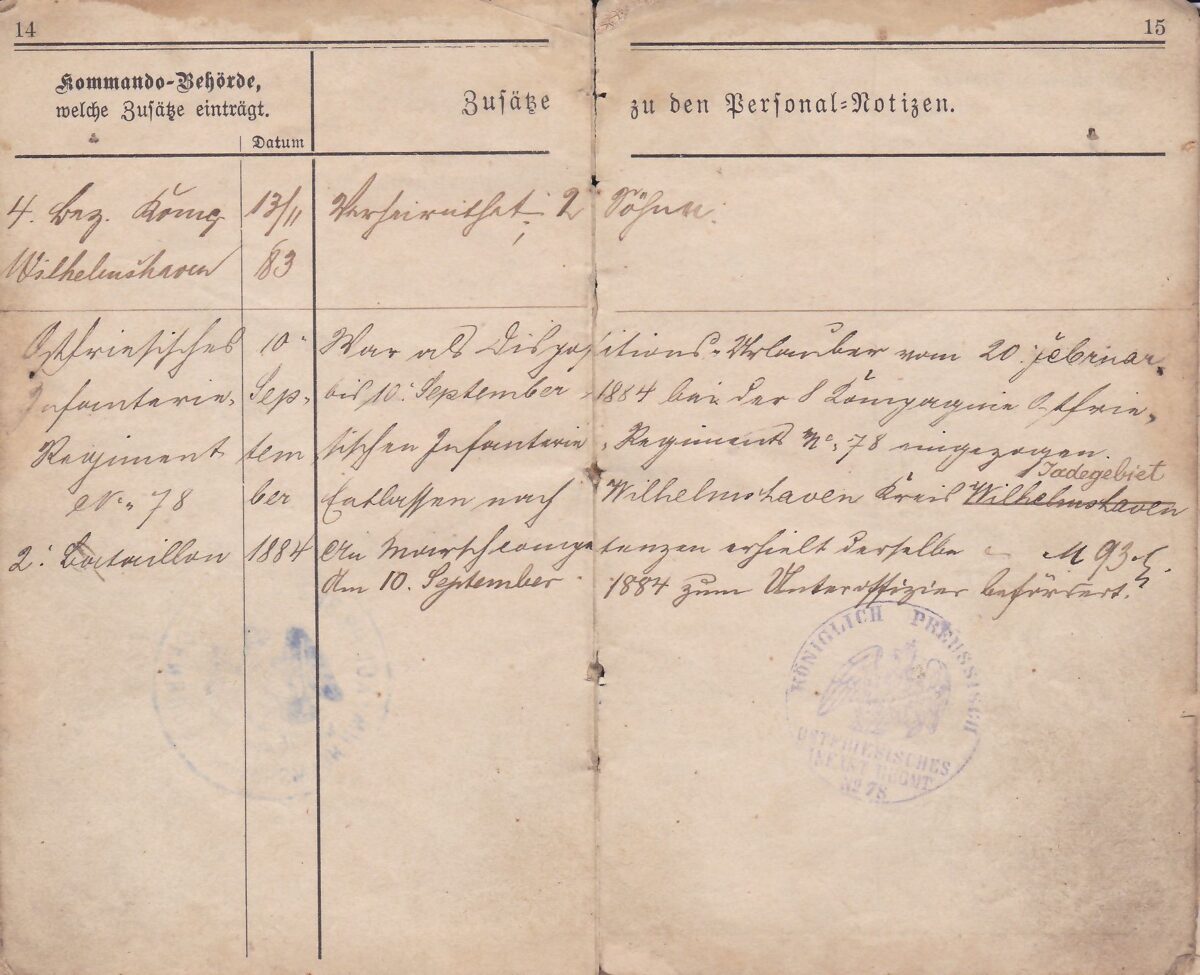 14
15
Kommando-Behörde,
welche Zusätze einträgt.
Datum
Zusätze zu den Personal-Notizen.
4. Bez. Komp. 13/11 Verheirathet; 2 Söhne.
Wilhelmshaven 83
Ostfriesisches 10. War als Dispositions-Urlauber vom 20. Februar
Infanterie- Sep- bis 10. September 1884 bei der 8 Kompagnie Ostfrie-
Regiment tem sischen Infanterie-Regiments No. 78 eingezogen.
Jadegebiet
No. 78 ber Entlassen nach Wilhelmshaven Kreis Wilhelmshaven
2. Bataillon 1884 An Marschcompetenzen erhielt derselbe M 93
Am 10. September 1884 zum Unteroffizier befördert.
KÖNIGLICH PREUSSISCH
OSTFRIESISCHES
INFANT. REGMT
No 78